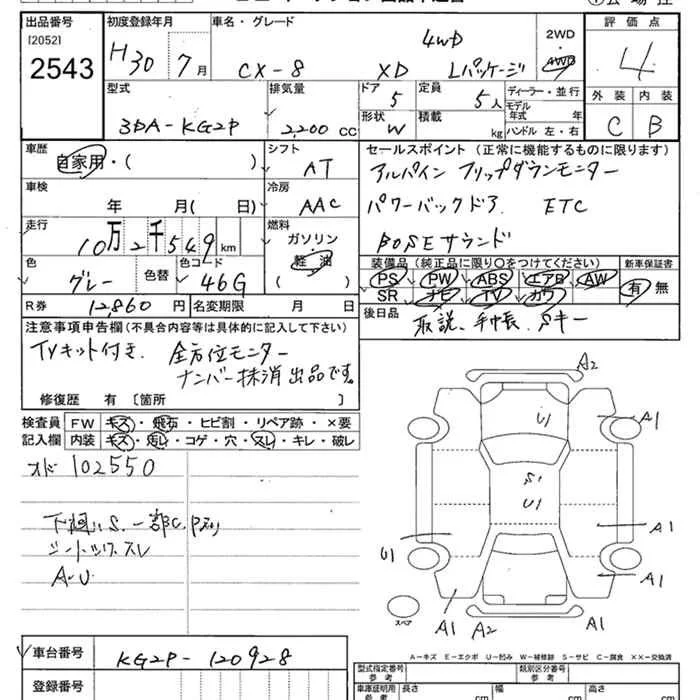 出品番号 初度登録年月 車名・グレード 2WD 評価点
[2052]
2543 H30 7月 CX-8 XD 4WD Lパッケージ AWD 4
型式 排気量 ドア 5 定員 5人 ディーラー・並行 外装 内装
3DA-KG2P 2,200 CC 形状 W 積載 kg モデル年式 年 ハンドル 左・右 C B
車歴 自家用・( ) シフト AT セールスポイント (正常に機能するものに限ります)
アルパイン フリップダウンモニター
車検 年 月( 日) 冷房 AAC パワーバックドア ETC
走行 10万2千549km 燃料 ガソリン・軽油 ( ) BOSEサウンド
色 グレー 色替 色コード 46G 装備品 (純正品に限り○をつけてください) 新車保証書
PS PW ABS エアB AW 有 無
SR ナビ TV カワ
R券 12,860 円 名変期限 月 日 後日品 取説、手帳、Sキー
注意事項申告欄 (不具合内容等は具体的に記入して下さい)
TVキット付き、全方位モニター
ナンバー抹消出品です。
修復歴 有 〔箇所 〕
検査員 FW キズ・飛石・ヒビ割・リペア跡・×要
記入欄 内装 キズ・汚レ・コゲ・穴・スレ・キレ・破レ
オド 102550
下廻りS、一部C
A・U
A2
U1 A1
S1
U1
A1
U1
A1
A1 A2 A1
スペア
A-キズ E-エクボ U-凹み W-補修跡 S-サビ C-腐食 ××-交換済
車台番号 KG2P-120928
型式指定番号 参考 類別区分番号 参考
登録番号 車庫証明用 参考 長さ cm 幅 cm 高さ cm